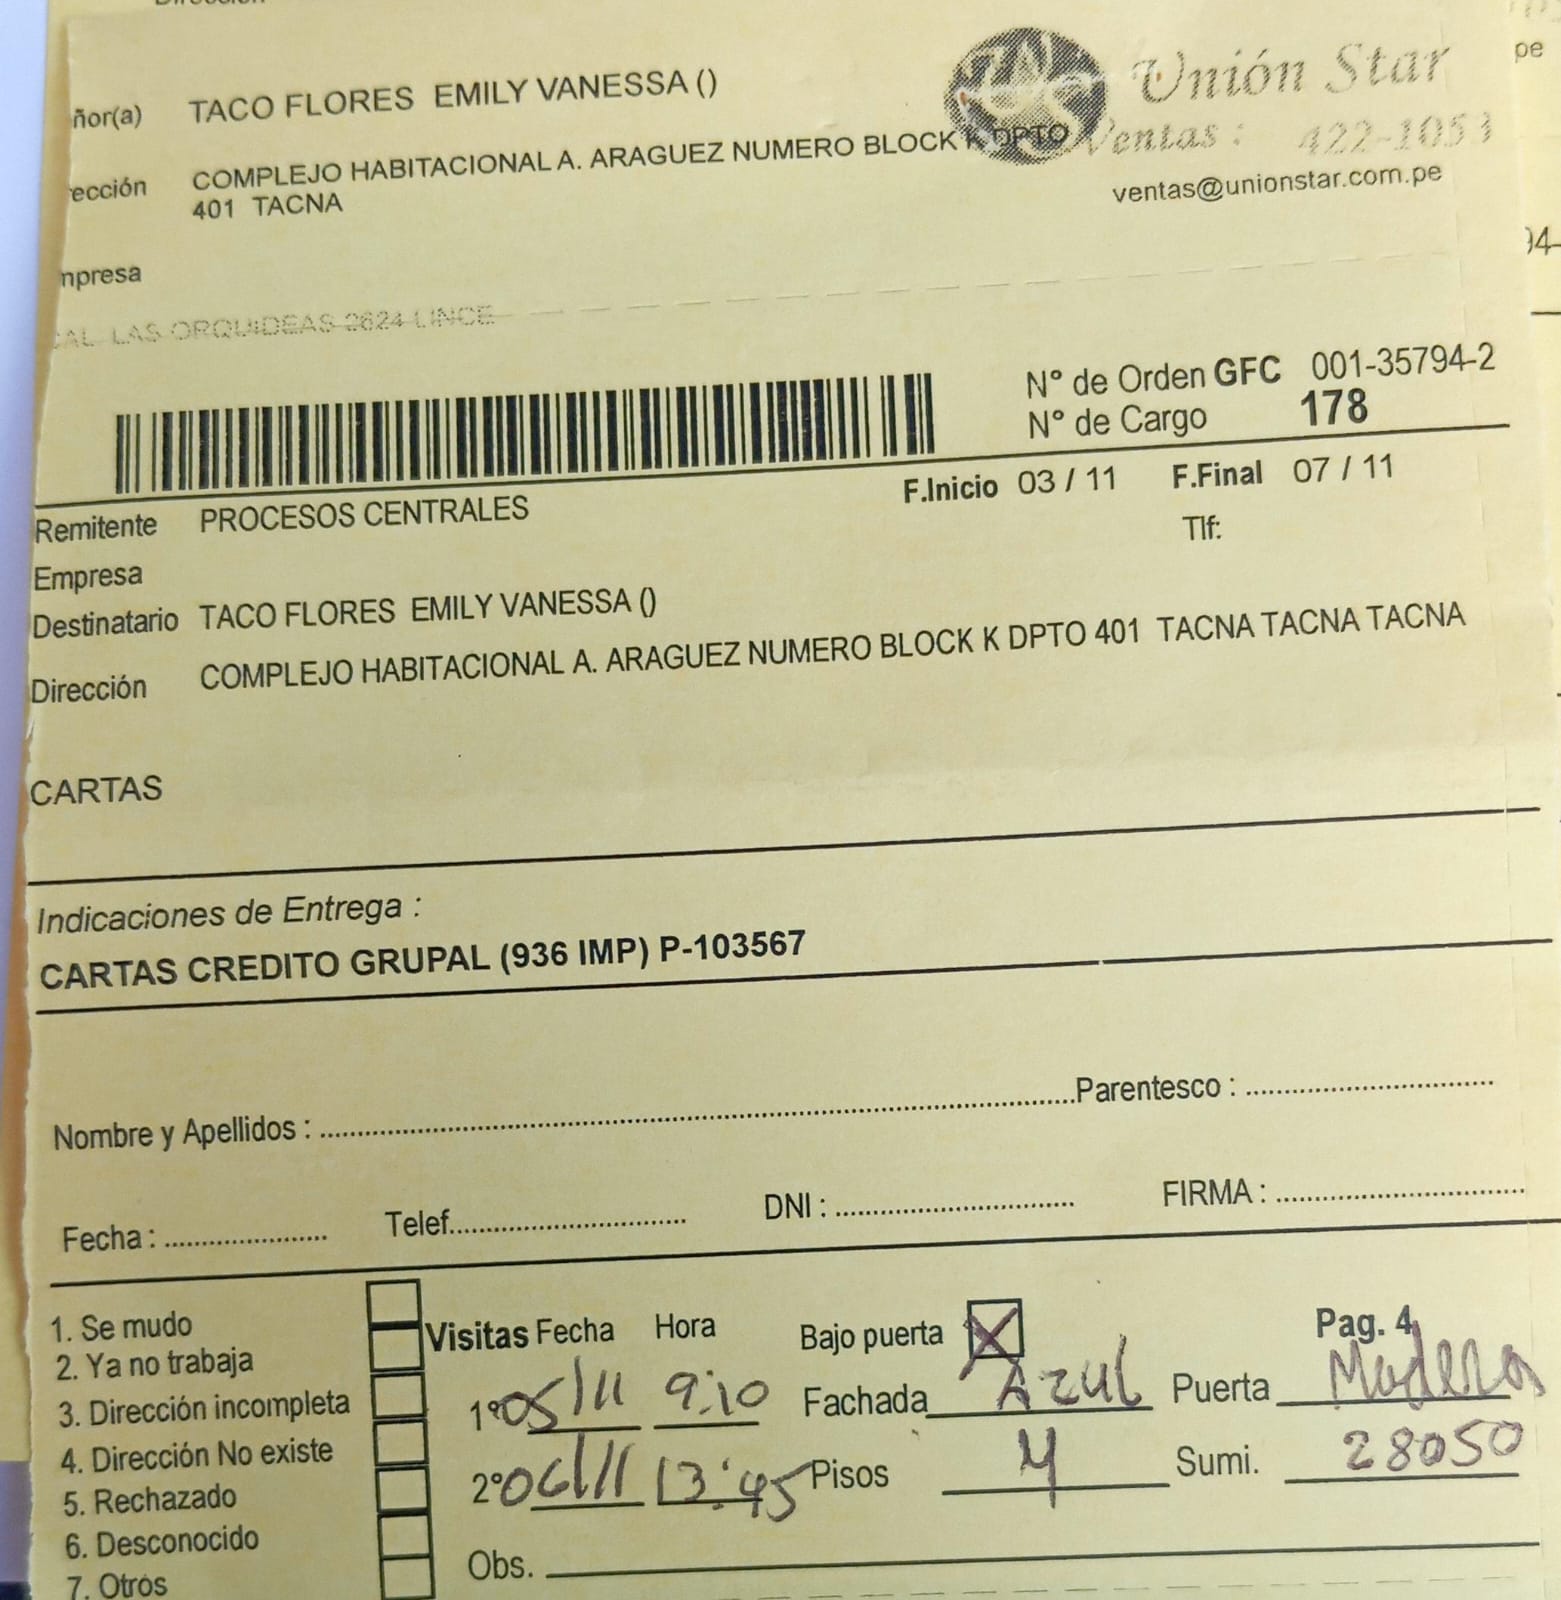 ñor(a) TACO FLORES EMILY VANESSA ()
Unión Star
Ventas: 422-1053
ventas@unionstar.com.pe
ección COMPLEJO HABITACIONAL A. ARAGUEZ NUMERO BLOCK K DPTO
401 TACNA
mpresa
CAL LAS ORQUIDEAS 2624 LINCE
N° de Orden GFC 001-35794-2
N° de Cargo 178
F.Inicio 03 / 11 F.Final 07 / 11
Remitente PROCESOS CENTRALES
Tlf:
Empresa
Destinatario TACO FLORES EMILY VANESSA ()
Dirección COMPLEJO HABITACIONAL A. ARAGUEZ NUMERO BLOCK K DPTO 401 TACNA TACNA TACNA
CARTAS
Indicaciones de Entrega :
CARTAS CREDITO GRUPAL (936 IMP) P-103567
Nombre y Apellidos : Parentesco :
Fecha : Telef. DNI : FIRMA :
1. Se mudo
2. Ya no trabaja
3. Dirección incompleta
4. Dirección No existe
5. Rechazado
6. Desconocido
7. Otros
Visitas Fecha Hora Bajo puerta X Pag. 4
1° 05/11 9:10 Fachada Azul Puerta Madera
2° 06/11 13:45 Pisos 4 Sumi. 28050
Obs.